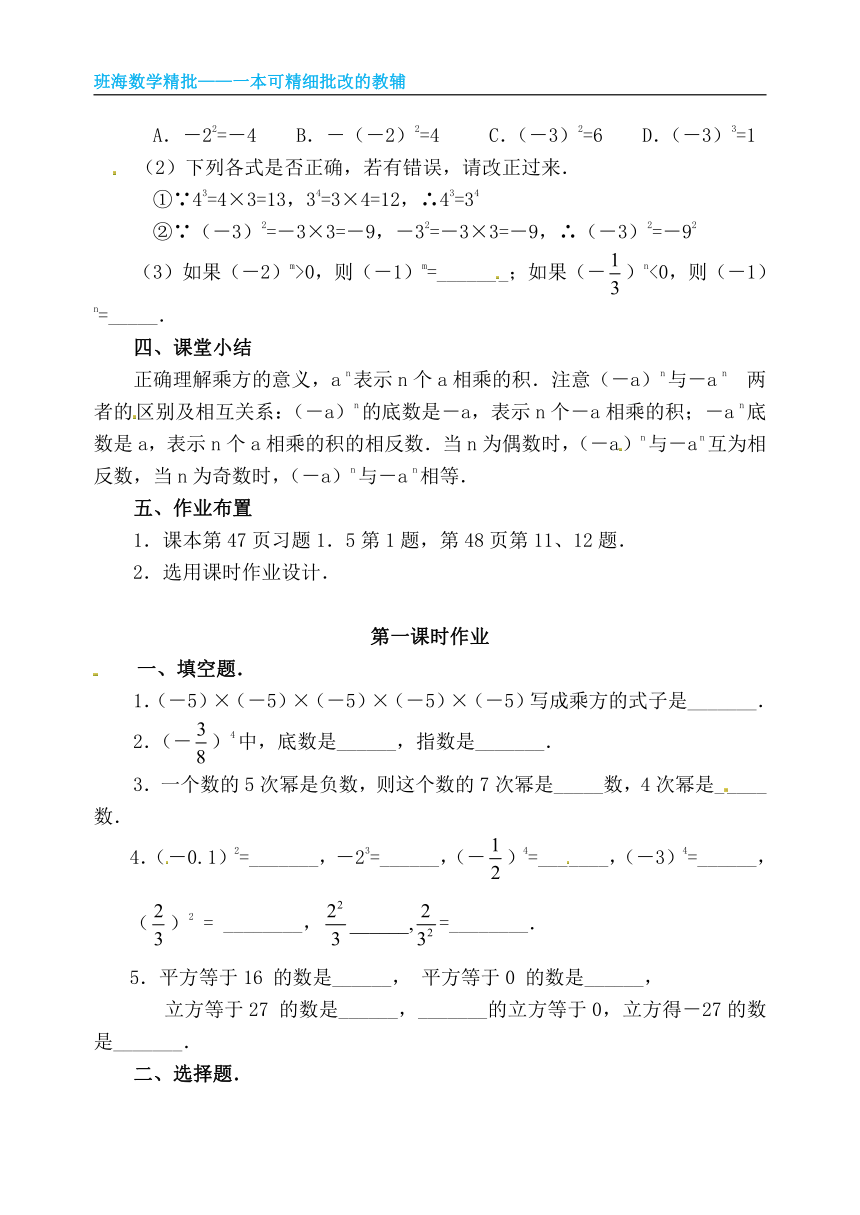 班海数学精批——一本可精细批改的教辅
A．－2²=－4 B．－(－2)²=4 C.(－3)²=6 D.(－3)³=1
（2）下列各式是否正确，若有错误，请改正过来．
①∵4³=4×3=13，3⁴=3×4=12，∴4³=3⁴
②∵（－3）²=－3×3=－9，－3²=－3×3=－9，∴（－3）²=－9²
（3）如果(－2)ᵐ>0，则（－1）ᵐ=_______；如果（－1/3）ⁿ<0，则（－1）
ⁿ=_____．
四、课堂小结
正确理解乘方的意义，aⁿ表示n个a相乘的积．注意（－a）ⁿ与－aⁿ 两
者的区别及相互关系：（－a）ⁿ的底数是－a，表示n个－a相乘的积；－aⁿ底
数是a，表示n个a相乘的积的相反数．当n为偶数时，（－a）ⁿ与－aⁿ互为相
反数，当n为奇数时，（－a）ⁿ与－aⁿ相等．
五、作业布置
1．课本第47页习题1．5第1题，第48页第11、12题．
2．选用课时作业设计．
第一课时作业
一、填空题．
1.(－5)×(－5)×(－5)×(－5)×(－5)写成乘方的式子是_______．
2.（－3/8）⁴中，底数是______，指数是_______．
3．一个数的5次幂是负数，则这个数的7次幂是_____数，4次幂是_____
数．
4.（－0.1）²=_______，－2³=______，（－1/2）⁴=_______，（－3）⁴=______，
（2/3）² = ________，2²/3 ______,2/3²=________．
5．平方等于16 的数是______， 平方等于0 的数是______，
立方等于27 的数是______，_______的立方等于0，立方得－27的数
是_______．
二、选择题．